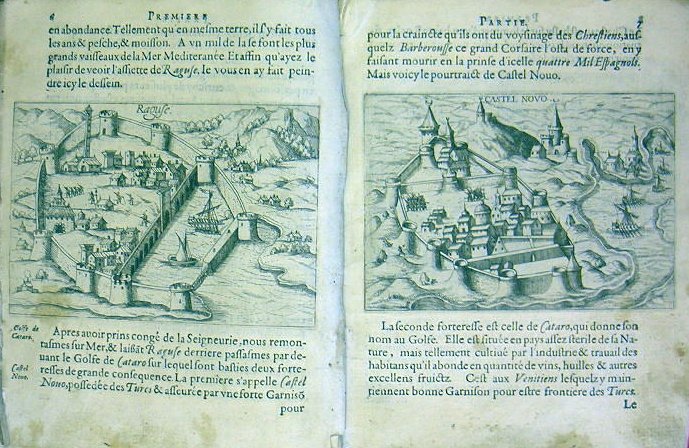 6
PREMIERE
en abondance. Tellement qu'en mesme terre, il s'y fait tous
les ans & pesche, & moison. A vn mil de la se font les plus
grands vaisseaux de la Mer Mediteranée Et affin qu'ayez le
plaisir de veoir l'assiette de Raguse, ie vous en ay fait pein-
dre icy le dessein.
Raguse.
Golfe de
Cataro.
Castel
Novo.
Apres avoir prins congé de la Seigneurie, nous remon-
tasmes sur Mer, & laissāt Raguse derriere passasmes par de-
uant le Golfe de Cataro sur lequel sont basties deux forte-
resses de grande consequence. La premiere s'appelle Castel
Nouo, possedée des Turcs & asseurée par vne forte Garnisō
pour
PARTIE.
7
pour la craincte qu'ils ont du voysinage des Chrestiens, aus-
quelz Barberousse ce grand Corsaire l'osta de force, en y
faisant mourir en la prinse d'icelle quattre Mil Espagnols.
Mais voicy le pourtraict de Castel Nouo.
CASTEL NOVO
La seconde forteresse est celle de Cataro, qui donne son
nom au Golfe. Elle est située en pays assez sterile de sa Na-
ture, mais tellement cultiué par l'industrie & trauail des
habitans qu'il abonde en quantité de vins, huilles & autres
excellens fruictz. C'est aux Venitiens lesquelz y main-
tiennent bonne Garnison pour estre frontiere des Turcs.
Le